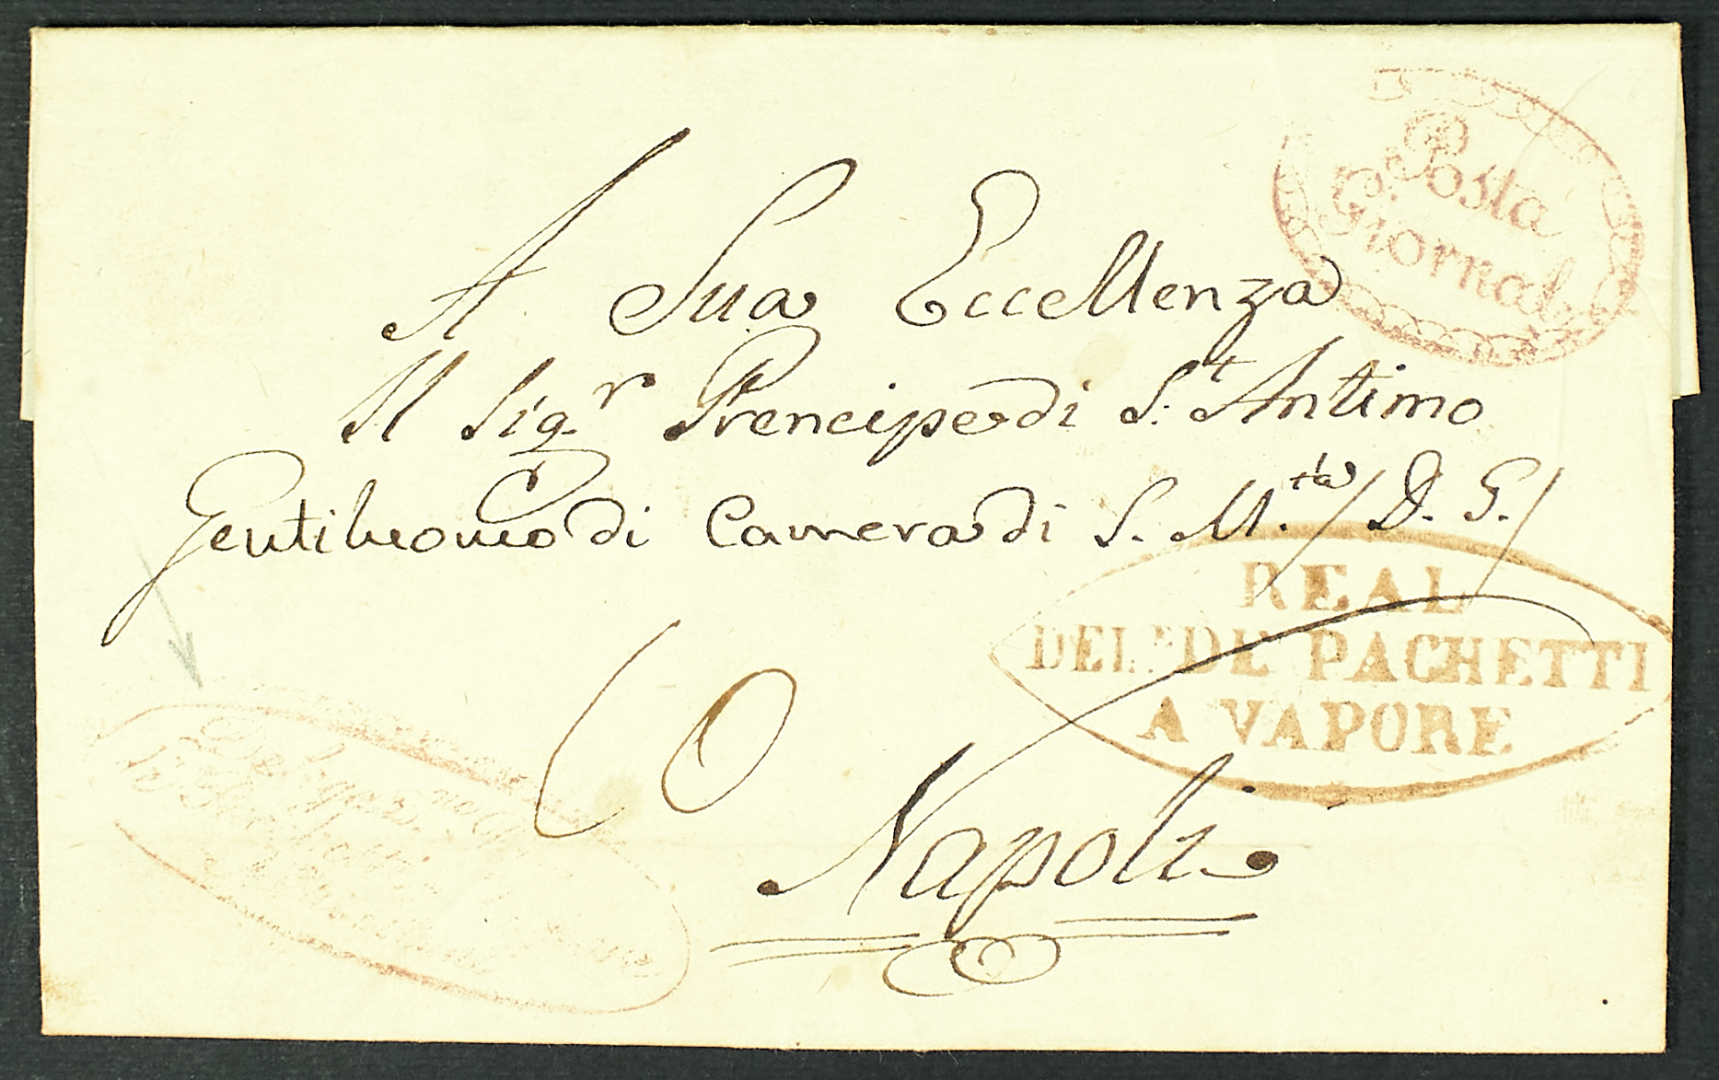 Posta
Giornal.
A Sua Eccellenza
Il Sig.r Prencipe di S.t Antimo
Gentiluomo di Camera di S. M.tà / D. G. /
REAL
DEL.ne DE PACHETTI
A VAPORE
Napoli